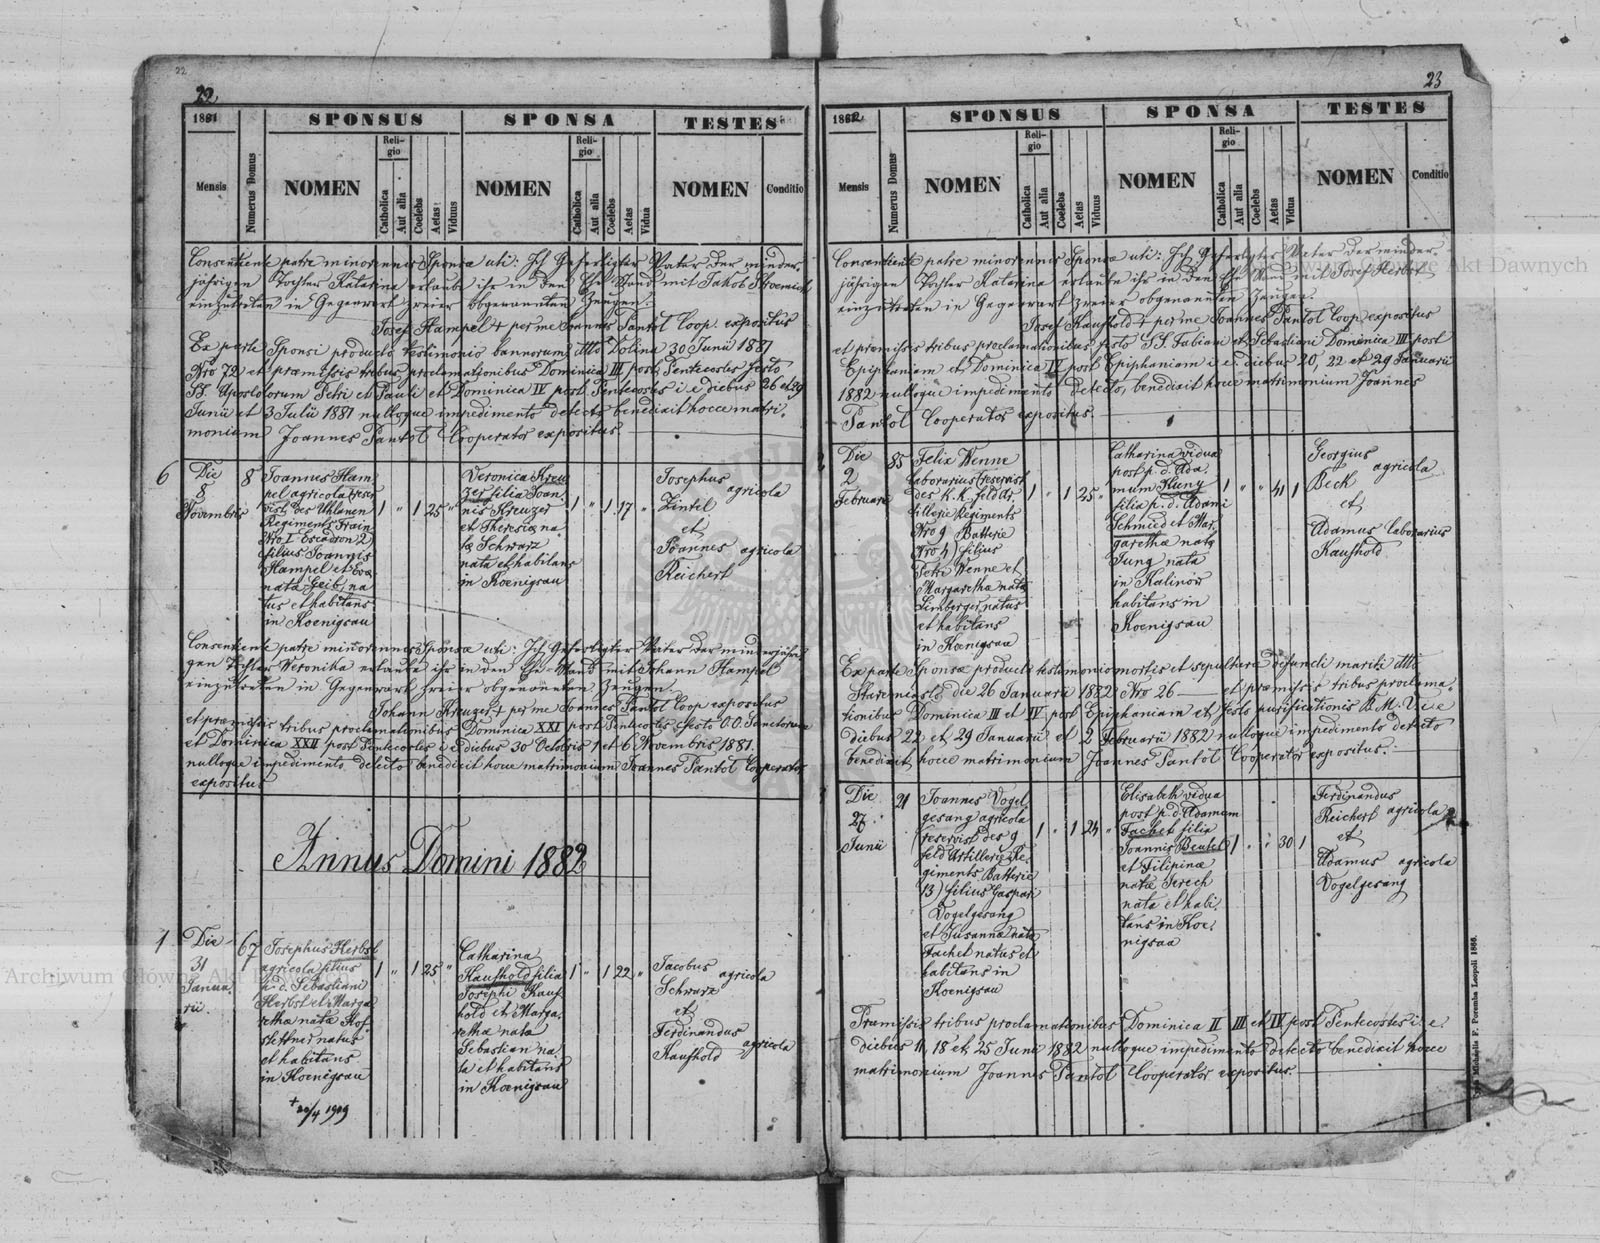 22
22
1881
SPONSUS
SPONSA
TESTES
Mensis
Numerus Domus
NOMEN
Religio
Catholica
Aut alia
Coelebs
Aetas
Viduus
NOMEN
Religio
Catholica
Aut alia
Coelebs
Aetas
Vidua
NOMEN
Conditio
Consentiente patre minorennis Sponsæ uti: Ich Gefertigter Vater der minder-
jährigen Tochter Katarina erlaube ihr in den Ehe Stand mit Jakob
einzutreten in Gegenwart zweier obgenannten Zeugen.
Josef Hampel + per me Joannes Pantol Coop. expositus
Ex parte Sponsi producto testimonio bannorum dtto Dolina 30 Junii 1881
Nro 72 et præmissis tribus proclamationibus Dominica III post Pentecostes festo
SS. Apostolorum Petri et Pauli et Dominica IV post Pentecostes i. e. diebus 26 et 29
Junii et 3 Julii 1881 nulloque impedimento detecto benedixit hocce matri-
monium Joannes Pantol Cooperator expositus.
6
Die
8
Novembris
8
Joannes Ham
pel agricola (reser
vist des Uhlanen
Regiments Train
Nro I Escadron 2)
filius Joannis
Hampel et Evæ
nata Leib, na
tus et habitans
in Koenigsau
1 " 1 25 "
Veronica Kreu
zer filia Joan
nis Kreuzer
et Theresiæ na
tæ Schwarz
nata et habitans
in Koenigsau
1 " 1 17 "
Josephus
Zintel
agricola
et
Joannes
Reichert
agricola
Consentiente patre minorennis Sponsæ uti: Ich Gefertigter Vater der minderjähri
gen Tochter Veronika erlaube ihr in den Ehe Stand mit Johann Hampel
einzutreten in Gegenwart zweier obgenannten Zeugen.
Johann Kreuzer + per me Joannes Pantol Coop expositus
et præmissis tribus proclamationibus Dominica XXI post Pentecostes festo O.O. Sanctorum
et Dominica XXII post Pentecostes i. e. diebus 30 Octobris 1 et 6 Novembris 1881.
nulloque impedimento detecto benedixit hocce matrimonium Joannes Pantol Cooperator
expositus
Annus Domini 1882
1
Die
31
Janua
rii
67
Josephus Herbst
agricola filius
p. d. Sebastiani
Herbst et Marga
rethæ natæ Hof-
stettner natus
et habitans
in Koenigsau
+ 20/4 1919
1 " 1 25 "
Catharina
Kaufhold filia
Josephi Kauf
hold et Marga.
rethæ nata
Sebastian na.
ta et habitans
in Koenigsau
1 " 1 22 "
Jacobus
Schwarz
agricola
et
Ferdinandus
Kaufhold
agricola
23
1882
SPONSUS
SPONSA
TESTES
Mensis
Numerus Domus
NOMEN
Religio
Catholica
Aut alia
Coelebs
Aetas
Viduus
NOMEN
Religio
Catholica
Aut alia
Coelebs
Aetas
Vidua
NOMEN
Conditio
Consentiente patre minorennis Sponsæ uti: Ich Gefertigter Vater der minder-
jährigen Tochter Katarina erlaube ihr in den Ehe Stand mit Josef Herbst
einzutreten in Gegenwart zweier obgenannten Zeugen.
Josef Kaufhold + per me Joannes Pantol Coop expositus
et præmissis tribus proclamationibus festo S.S. Fabiani et Sebastiani Dominica III post
Epiphaniam et Dominica IV post Epiphaniam i e. diebus 20, 22 et 29 Januarii
1882 nulloque impedimento detecto, benedixit hocce matrimonium Joannes
Pantol Cooperator expositus.
2
Die
2
Februarii
85
Felix Wenne
laborarius (reservist
des K. K. feld Ar.
tillerie Regiments
Nro 9 Batterie
Nro 4) filius
Petri Wenne et
Margarethæ natæ
Limberger natus
et habitans
in Koenigsau
1 " 1 25 "
Catharina vidua
post p. d. Ada.
mum Kuny
filia p. d. Adami
Schmied et Mar.
garethæ natæ
Jung nata
in Kalinów
habitans in
Koenigsau
1 " " 41 1
Georgius
Beck
agricola
et
Adamus
Kaufhold
laborarius
Ex parte Sponsæ producto testimonio mortis et sepulturæ defuncti mariti dtto
Staremiasto die 26 Januarii 1882 Nro 26 — et præmissis tribus proclama.
tionibus Dominica III et IV post Epiphaniam et festo purificationis B. M. V. i e
diebus 22 et 29 Januarii et 2 Februarii 1882 nulloque impedimento detecto
benedixit hocce matrimonium Joannes Pantol Cooperator expositus.
3
Die
27
Junii
21
Joannes Vogel
gesang agricola
(reservist des 9
feld Artillerie Re.
giments Batterie
13) filius Gaspari
Vogelgesang
et Susannæ natæ
Fachet natus et
habitans in
Koenigsau
1 " 1 24 "
Elisabeth vidua
post p. d. Adamum
Fachet filia
Joannis Beutel
et Filipinæ
natæ Ferech
nata et habi.
tans in Koe.
nigsau
1 " " 30 1
Ferdinandus
Reichert
agricola
et
Adamus
Vogelgesang
agricola
Præmissis tribus proclamationibus Dominica II III et IV post Pentecostes i. e.
diebus 11, 18 et 25 Junii 1882 nulloque impedimento detecto benedixit hocce
matrimonium Joannes Pantol Cooperator expositus.
Michaelis F. Poremba Leopoli 1866.
Archiwum Główne Akt Dawnych
Archiwum Główne Akt Dawnych